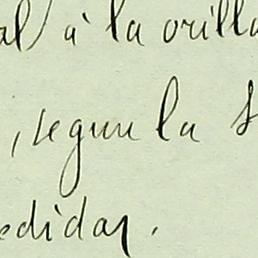 al à la orilla
, segun la
edidas.